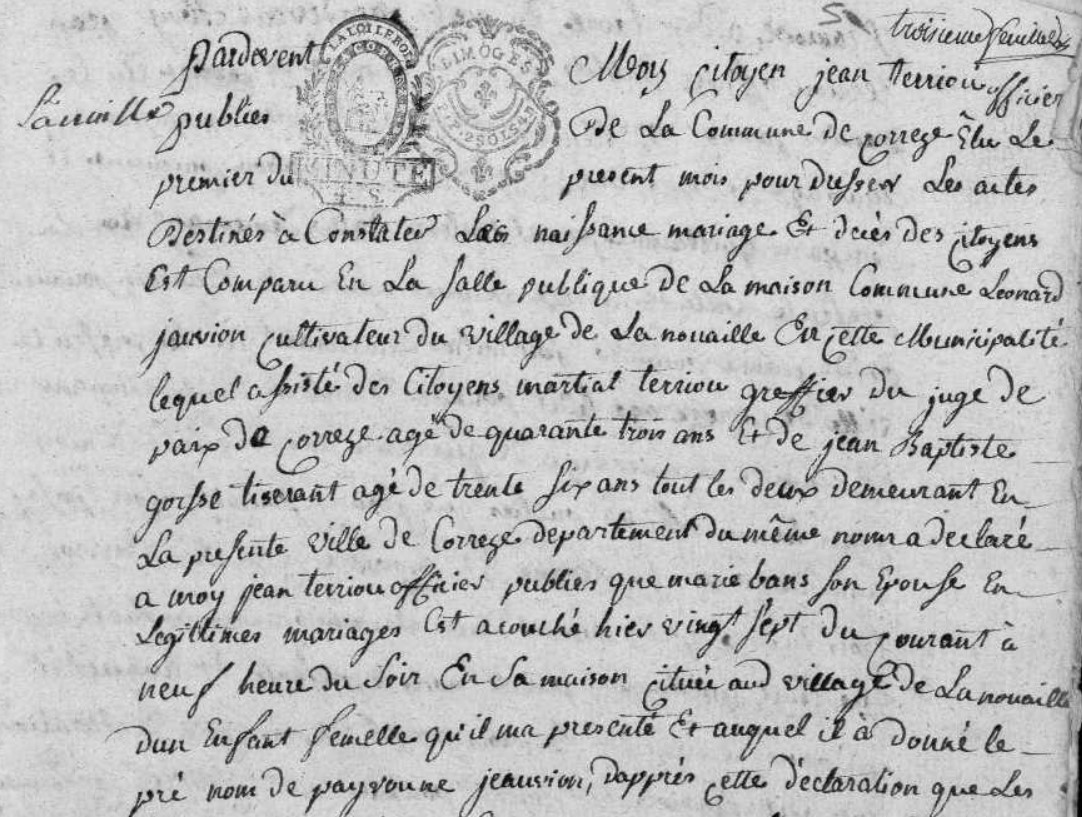 troisieme feuillet
Pardevent Moy Citoyen jean terriou officier
Lanouille
publies De La Commune de Correze Elu Le
premier du present mois pour Dresser Les actes
Destinés à Constater Les naissance mariage Et décès des Citoyens
Est Comparu En La salle publique de La maison Commune Leonard
jauvion Cultivateur du village de La nouaille En Cette Municipalité
lequel assisté des Citoyens martial terriou greffier du juge de
paix de Correze agé de quarante trois ans Et de jean Baptiste
gorsse tiserant agé de trente six ans tout les deux demeurant En
La presente ville de Correze departement du même nom a declaré
a moy jean terriou officier publies que marie bans son Epouse En
Legittimes mariages Est acouché hier vingt sept du courant à
neuf heure du soir En sa maison cituée aud village de La nouaille
dun Enfant femelle qu'il ma presenté Et auquel il à donné le
pré nom de payronne jeauvion, Dapprés cette déclaration que Les
LA LOI LE ROI
MINUTE
4 S
LIMOGES
2 SOLS 4